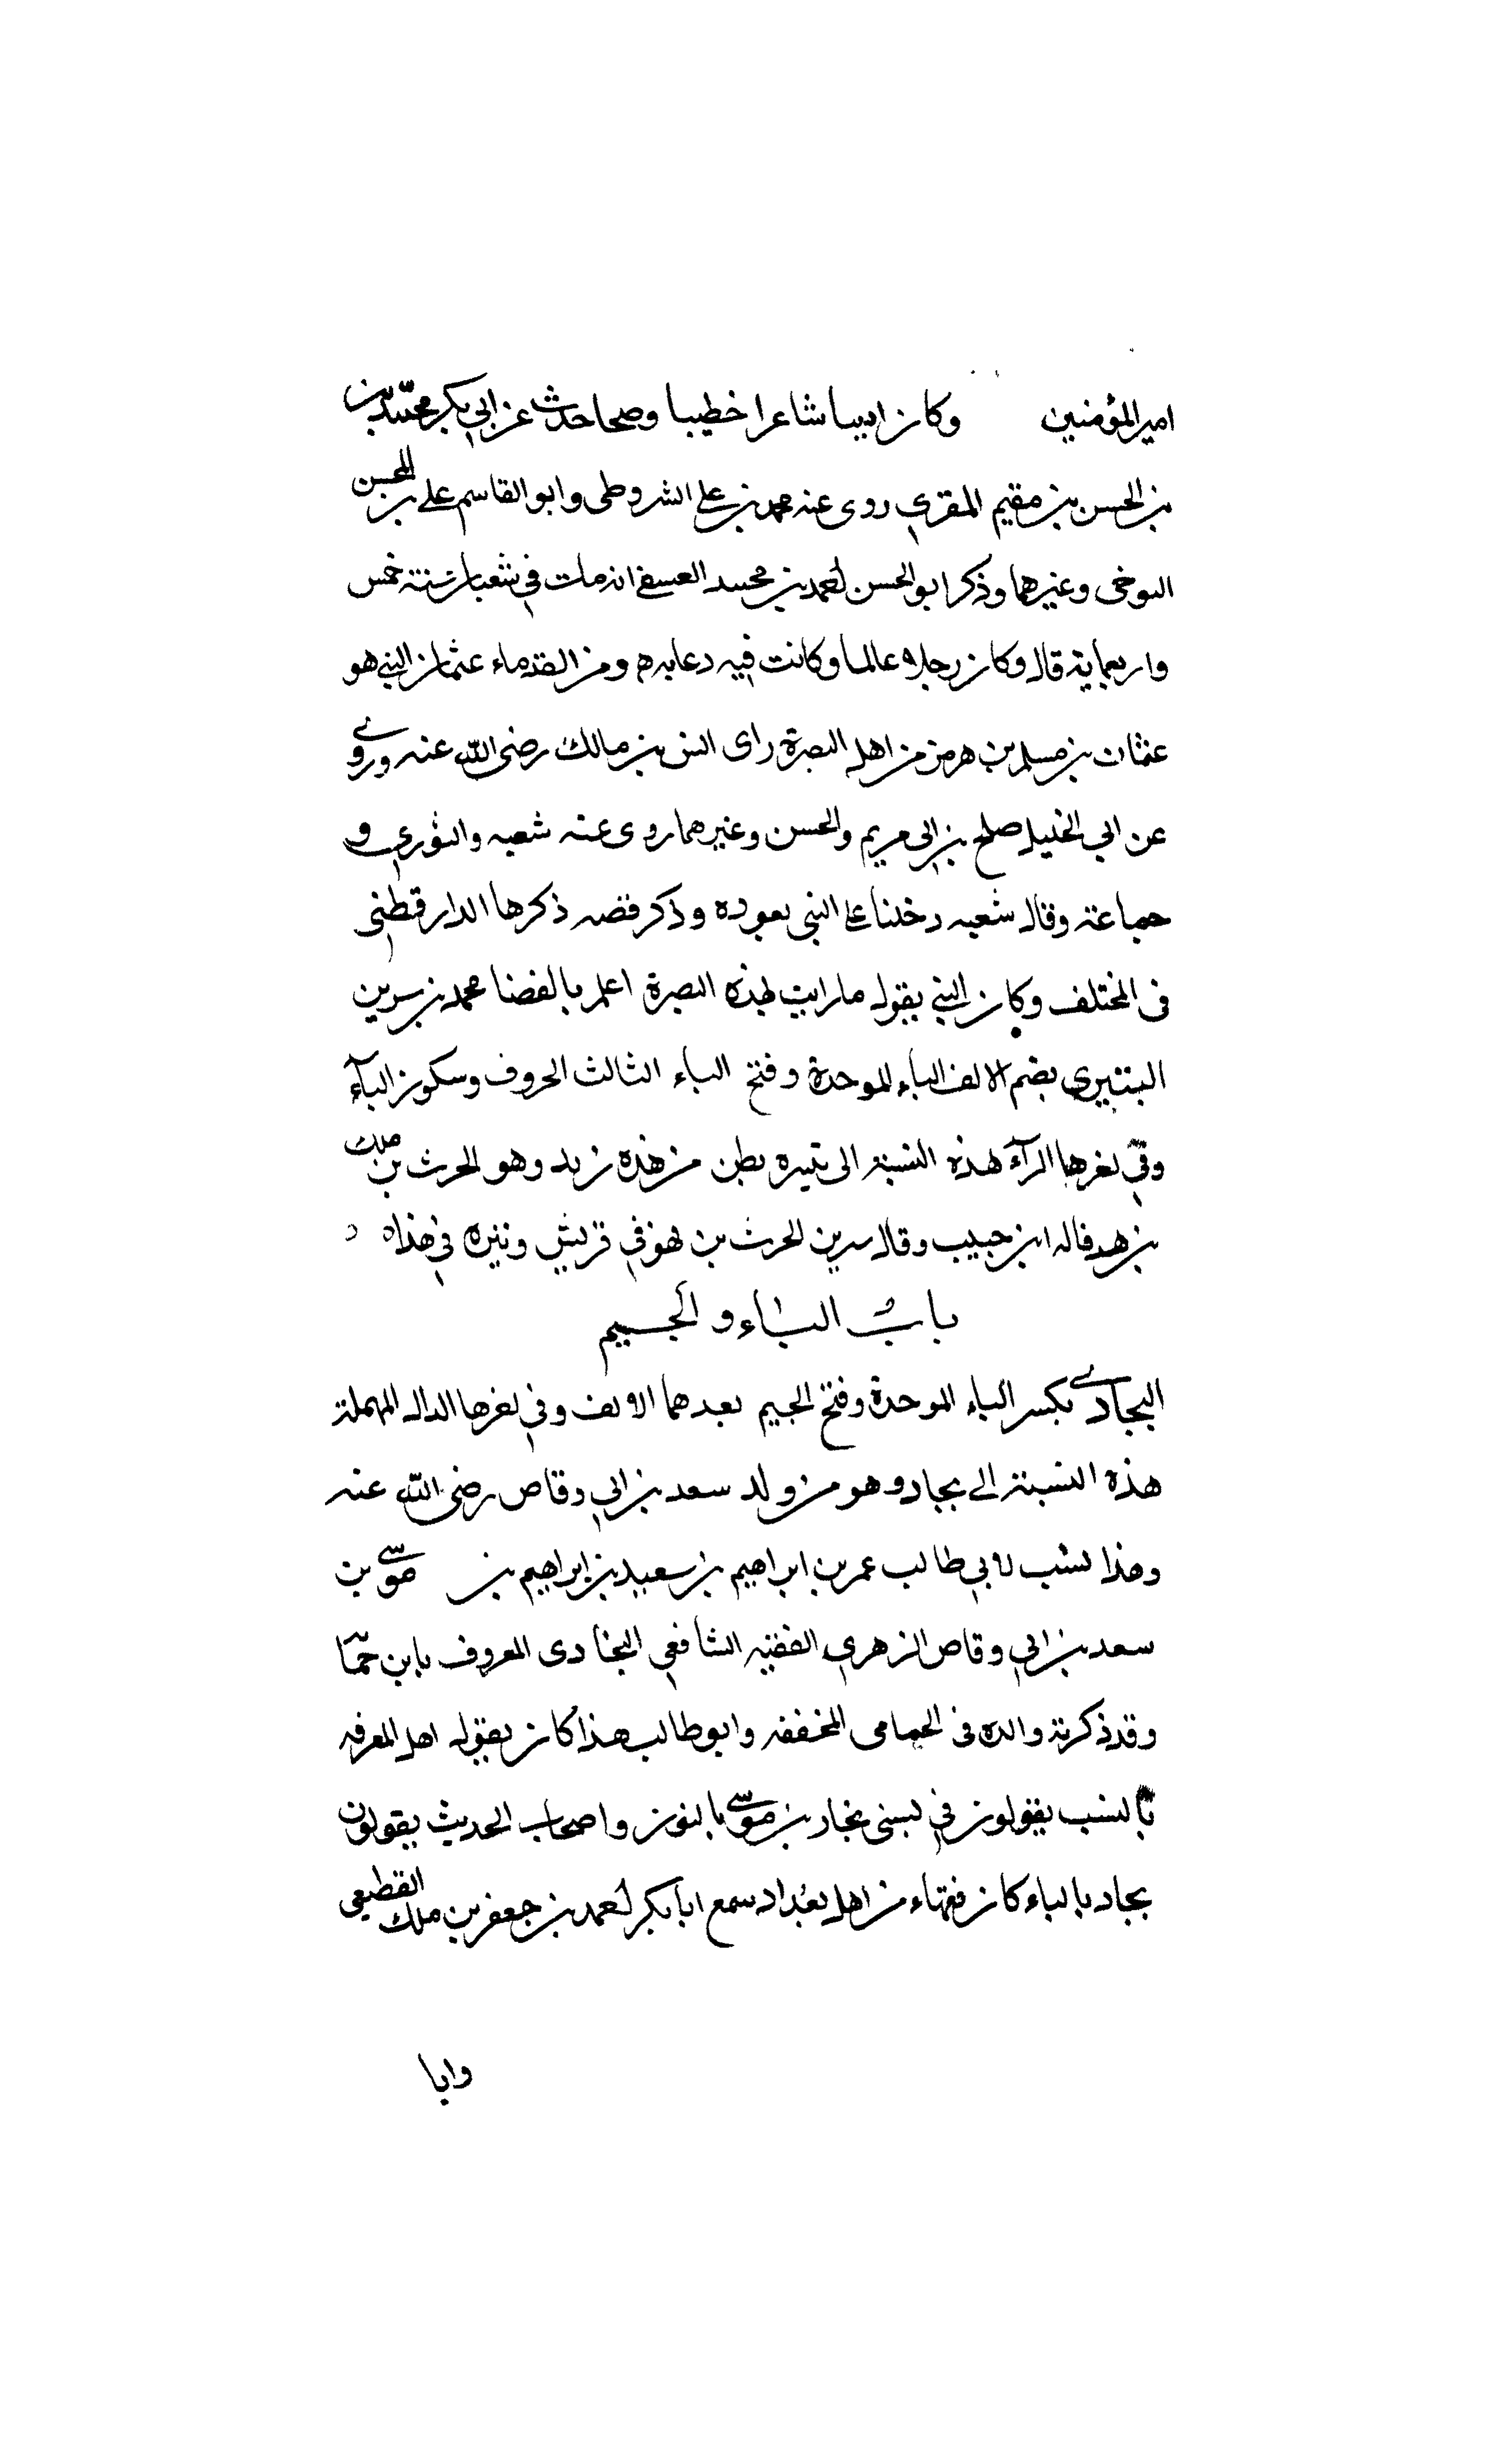 امير المؤمنين وكان اديبا شاعرا خطيبا وصحا حدث عن ابي بكر محمد بن
بن الحسن بن مقيم المقري روى عنه محمد بن علي الشروطى وابو القاسم على بن المحسن
التوخى وغيرهما وذكر ابو الحسن احمد بن محمد العتيقي انه مات في شعبان سنة خمس
واربعماية قال وكان رجلا عالما وكانت فيه دعابه ومن القدماء عثمان البتي هو
عثمان بن مسلم بن هرمز من اهل البصرة راى انس بن مالك رضى الله عنه وروي
عن ابي الخليل صلح بن ابى مريم والحسن وغيرهما روى عنه شعبه والثوري و
جماعة وقال شعبه دخلنا على البتى نعوده وذكر قصه ذكرها الدارقطنى
فى المختلف وكان البتي يقول ما رايت بهذه البصرة اعلم بالقضا محمد بن سرين
البتيري بضم الالف الباء الموحدة وفتح الباء الثالث الحروف وسكون الباء
وفي اخرها الراء هذه النسبة الى بتيره بطن من هذه زيد وهو الحرث بن ملك
بن هد قاله ابن حبيب وقال سرين الحرث بن فهو في قريش وبتيره في هذاه
باب الباء والجيم
البجادي بكسر الباء الموحدة وفتح الجيم بعدهما الالف وفي اخرها الدال المهملة
هذه النسبة الى بجاد وهو من ولد سعد بن ابي وقاص رضى الله عنه
وهذا نسب لابي طالب عمر بن ابراهيم بن سعيد بن ابراهيم بن موسى بن
سعد بن ابي وقاص الزهري الفقيه الشافعي البجادى المعروف بابن حما
وقد ذكرته والده فى الحمامى المخففه وابو طالب هذا كان يقول اهل المعرفه
بالنسب يقولون في نسبى نجاد بن موسى بالنون واصحاب الحديث يقولون
بجاد بالباء كان فقهاء من اهل بغداد سمع ابا بكر احمد بن جعفر بن ملك القطيعى
وابا